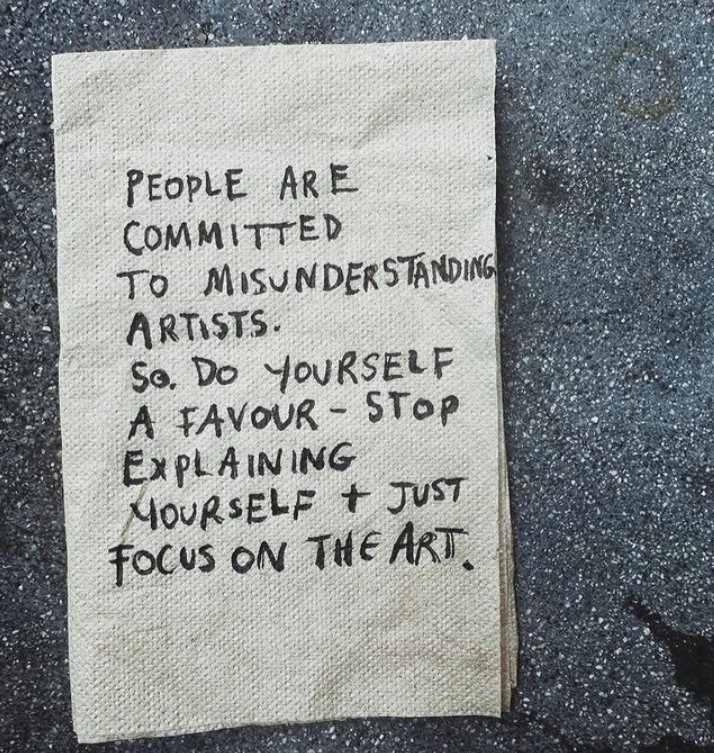 PEOPLE ARE
COMMITTED
TO MISUNDERSTANDING
ARTISTS.
SO. DO YOURSELF
A FAVOUR - STOP
EXPLAINING
YOURSELF + JUST
FOCUS ON THE ART.